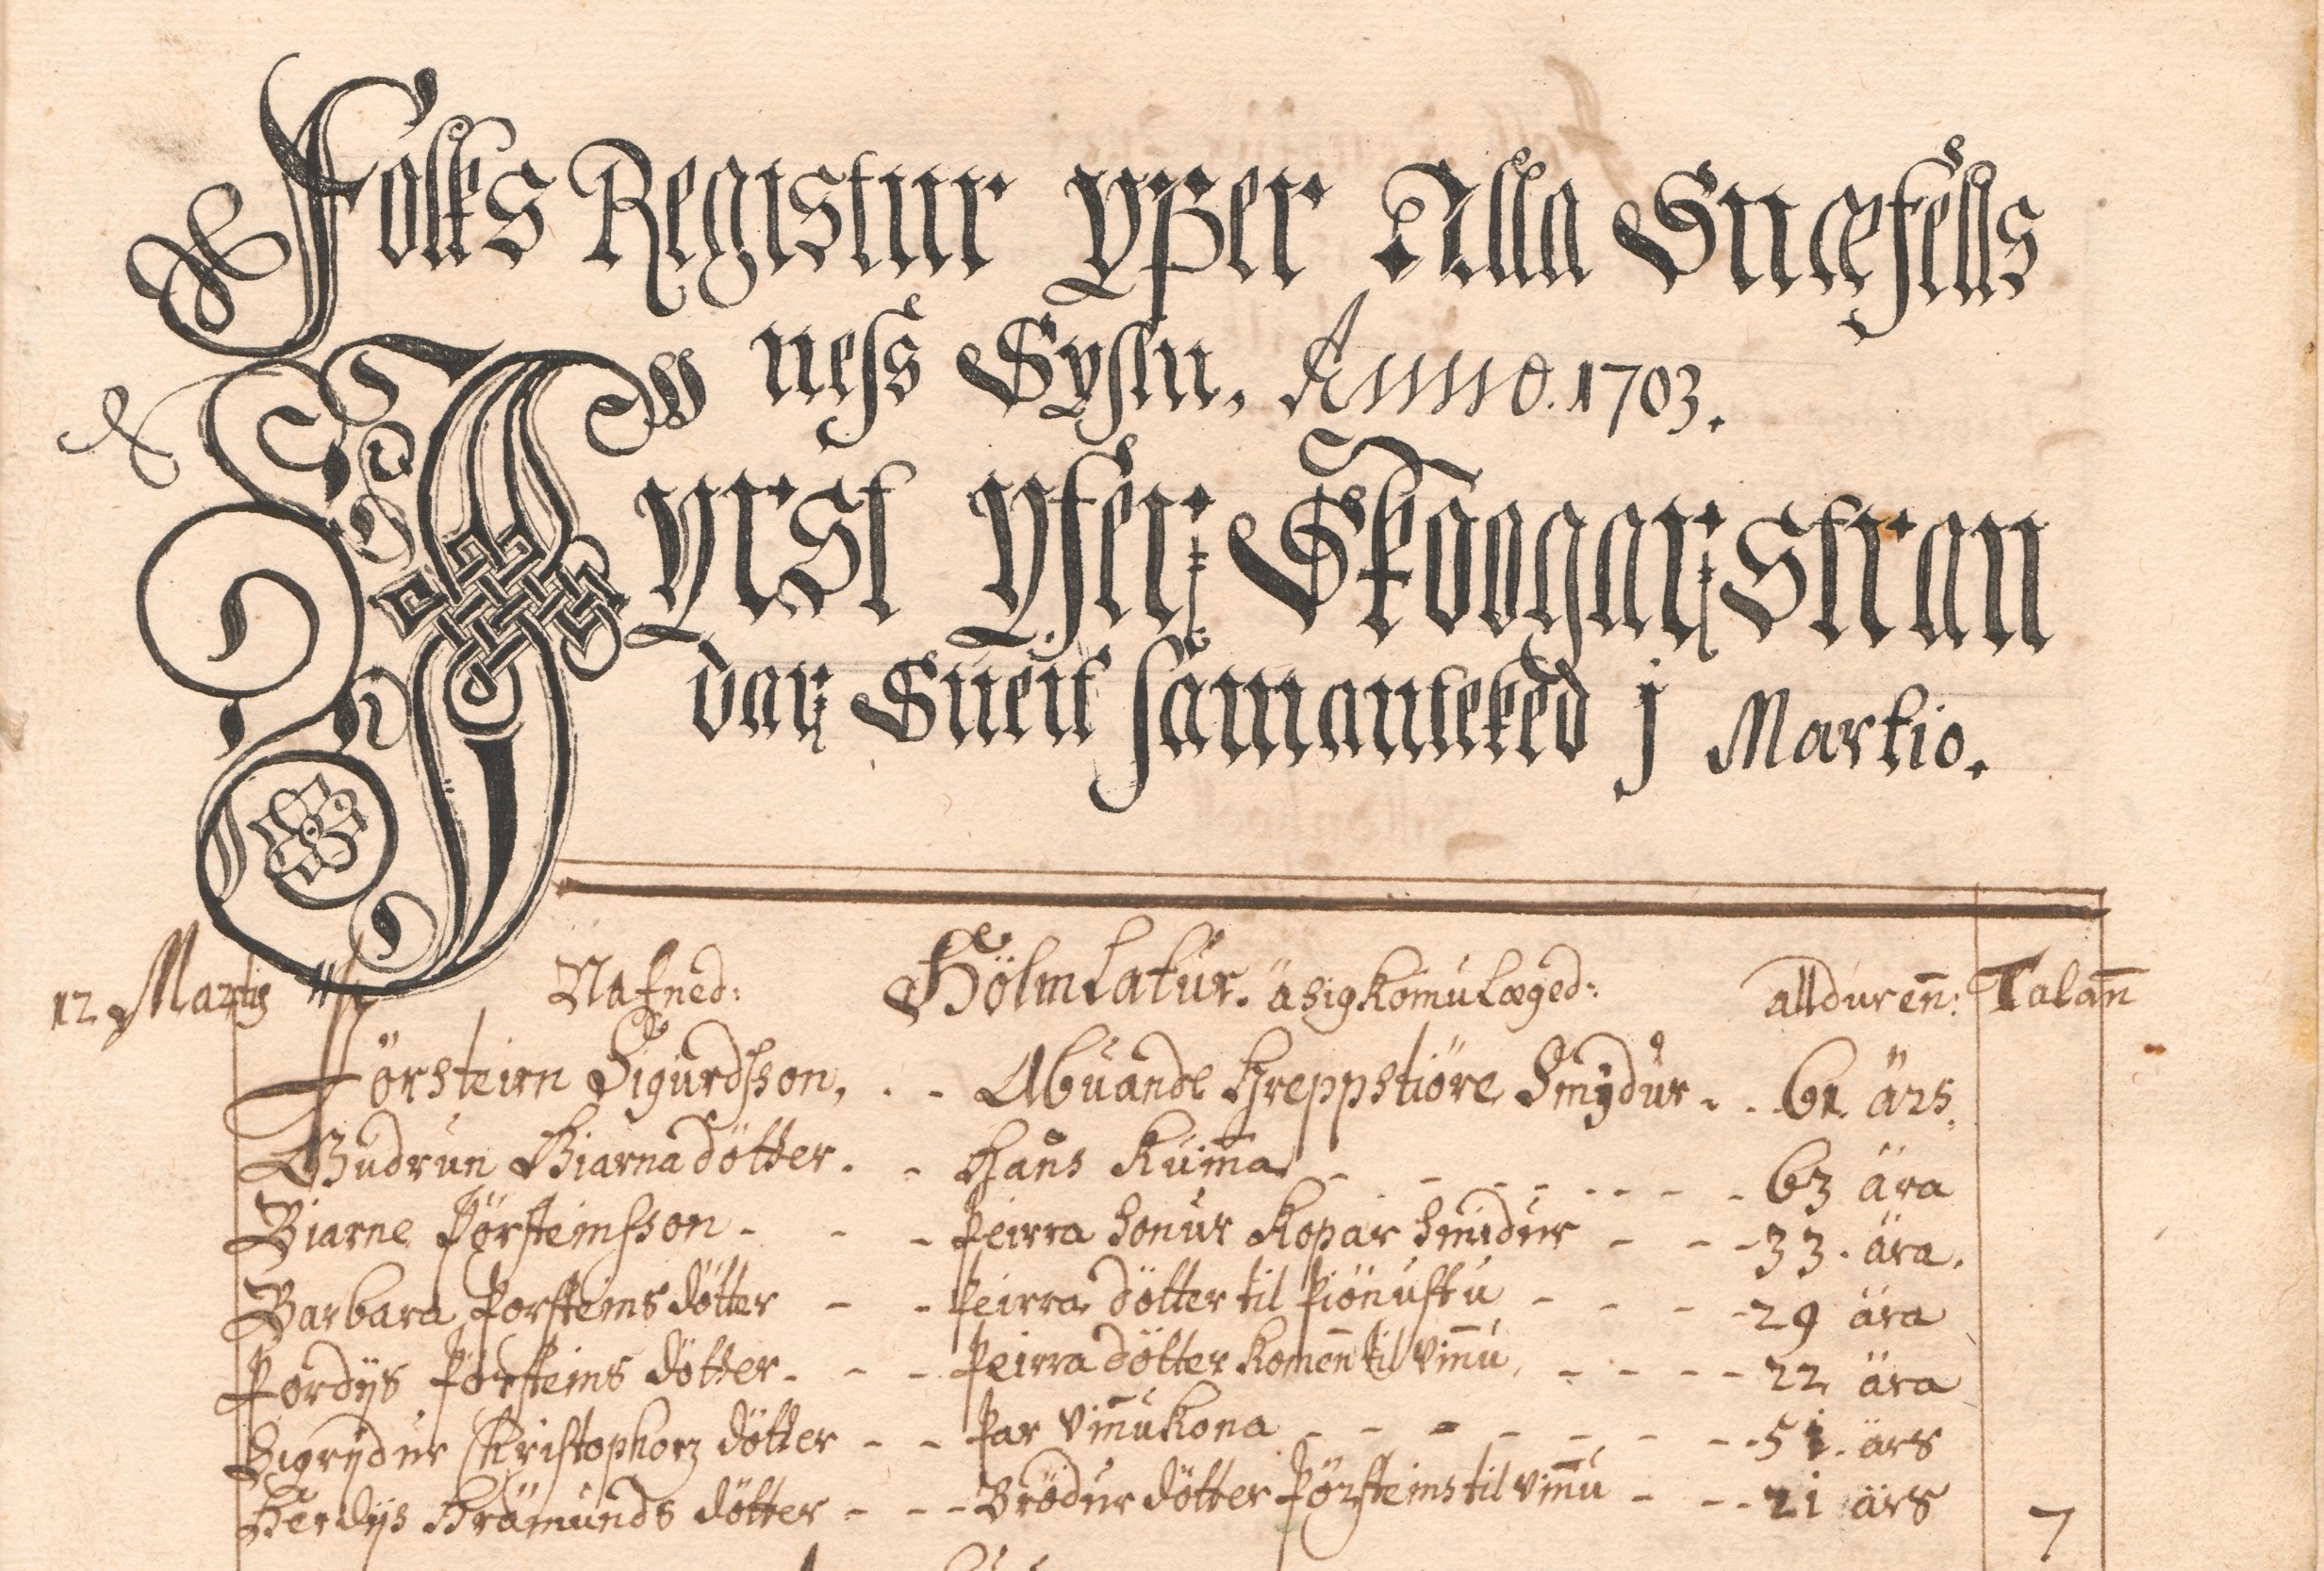 Fölks Registur yfzer Alla Snæfells
ness Syslu, Anno. 1703.
Fyrst yfer Skoogarstran
dar Sueit samanteked j Martio.
12 Martij Nafned: Hölmlatur. äsigkomulæged: alldureñ: Talañ
Þörsteirn Sigurdsson, . - Abuande hreppstiöre Smÿdur - . 61 ärs.
Gudrun Biarna dötter. - hans kuiña - - - - - - - 63 ära
Biarne Þörsteinsson - - - Þeirra sonur kopar smidur - - - 33. ära.
Barbara Þorsteins dötter - - Þeirra dötter til Þiönustu - - - - 29 ära
Þordijs Þorsteins dötter. - - Þeirra dötter komeñ til viñu. - - - - 22 ära
Sigrijdur Christophors dötter - - Þar viñukona - - - - - - - . 51. ärs
Herdijs Hrömunds dötter - - - Brödur dötter Þörsteins til viñu - - - 21 ärs 7